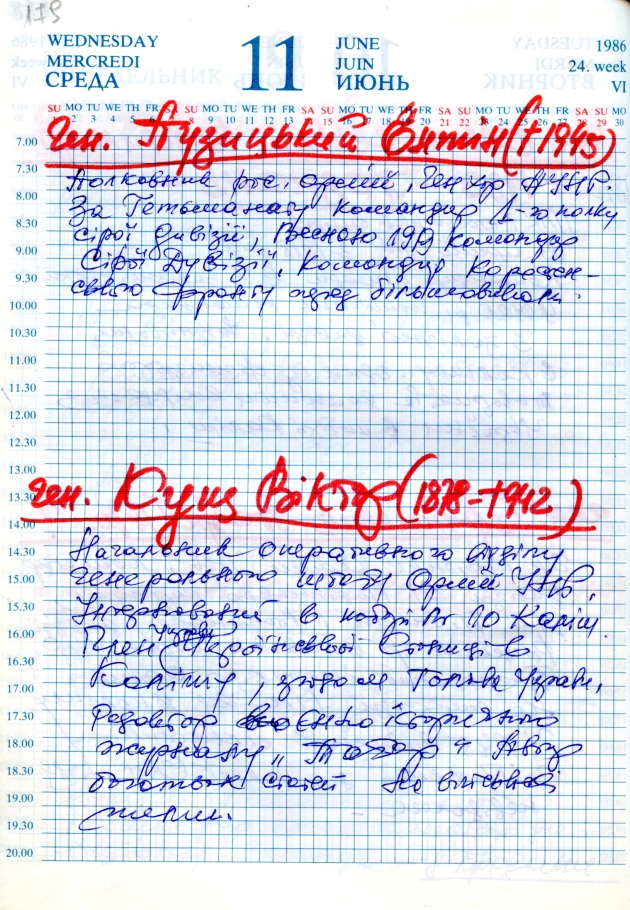 179
WEDNESDAY
MERCREDI
СРЕДА
11
JUNE
JUIN
ИЮНЬ
1986
24. week
VI
SU MO TU WE TH FR SA SU MO TU WE TH FR SA SU MO TU WE TH FR SA SU MO TU WE TH FR SA SU MO
1 2 3 4 5 6 7 8 9 10 11 12 13 14 15 16 17 18 19 20 21 22 23 24 25 26 27 28 29 30
ген. Пузицький Антін (†1945)
Полковник рос. армії, Ген хор АУНР.
За Гетьманату командир 1-го полку
сірої дивізії, Весною 1919 командир
Сірої Дивізії, Командир Коростен-
ського фронту перед більшовиками.
ген. Кущ Віктор (1878-†1942)
Начальник оперативного відділу
генерального штабу Армії УНР,
Інтернований в таборі Nr 10 Каліш.
Член Управи Української Станиці в
Каліші, згодом Голова Управи,
Редактор воєнно історичного
журналу „Табор" Автор
багатьох статей на військові
теми.
7.00
7.30
8.00
8.30
9.00
9.30
10.00
10.30
11.00
11.30
12.00
12.30
13.00
13.30
14.00
14.30
15.00
15.30
16.00
16.30
17.00
17.30
18.00
18.30
19.00
19.30
20.00